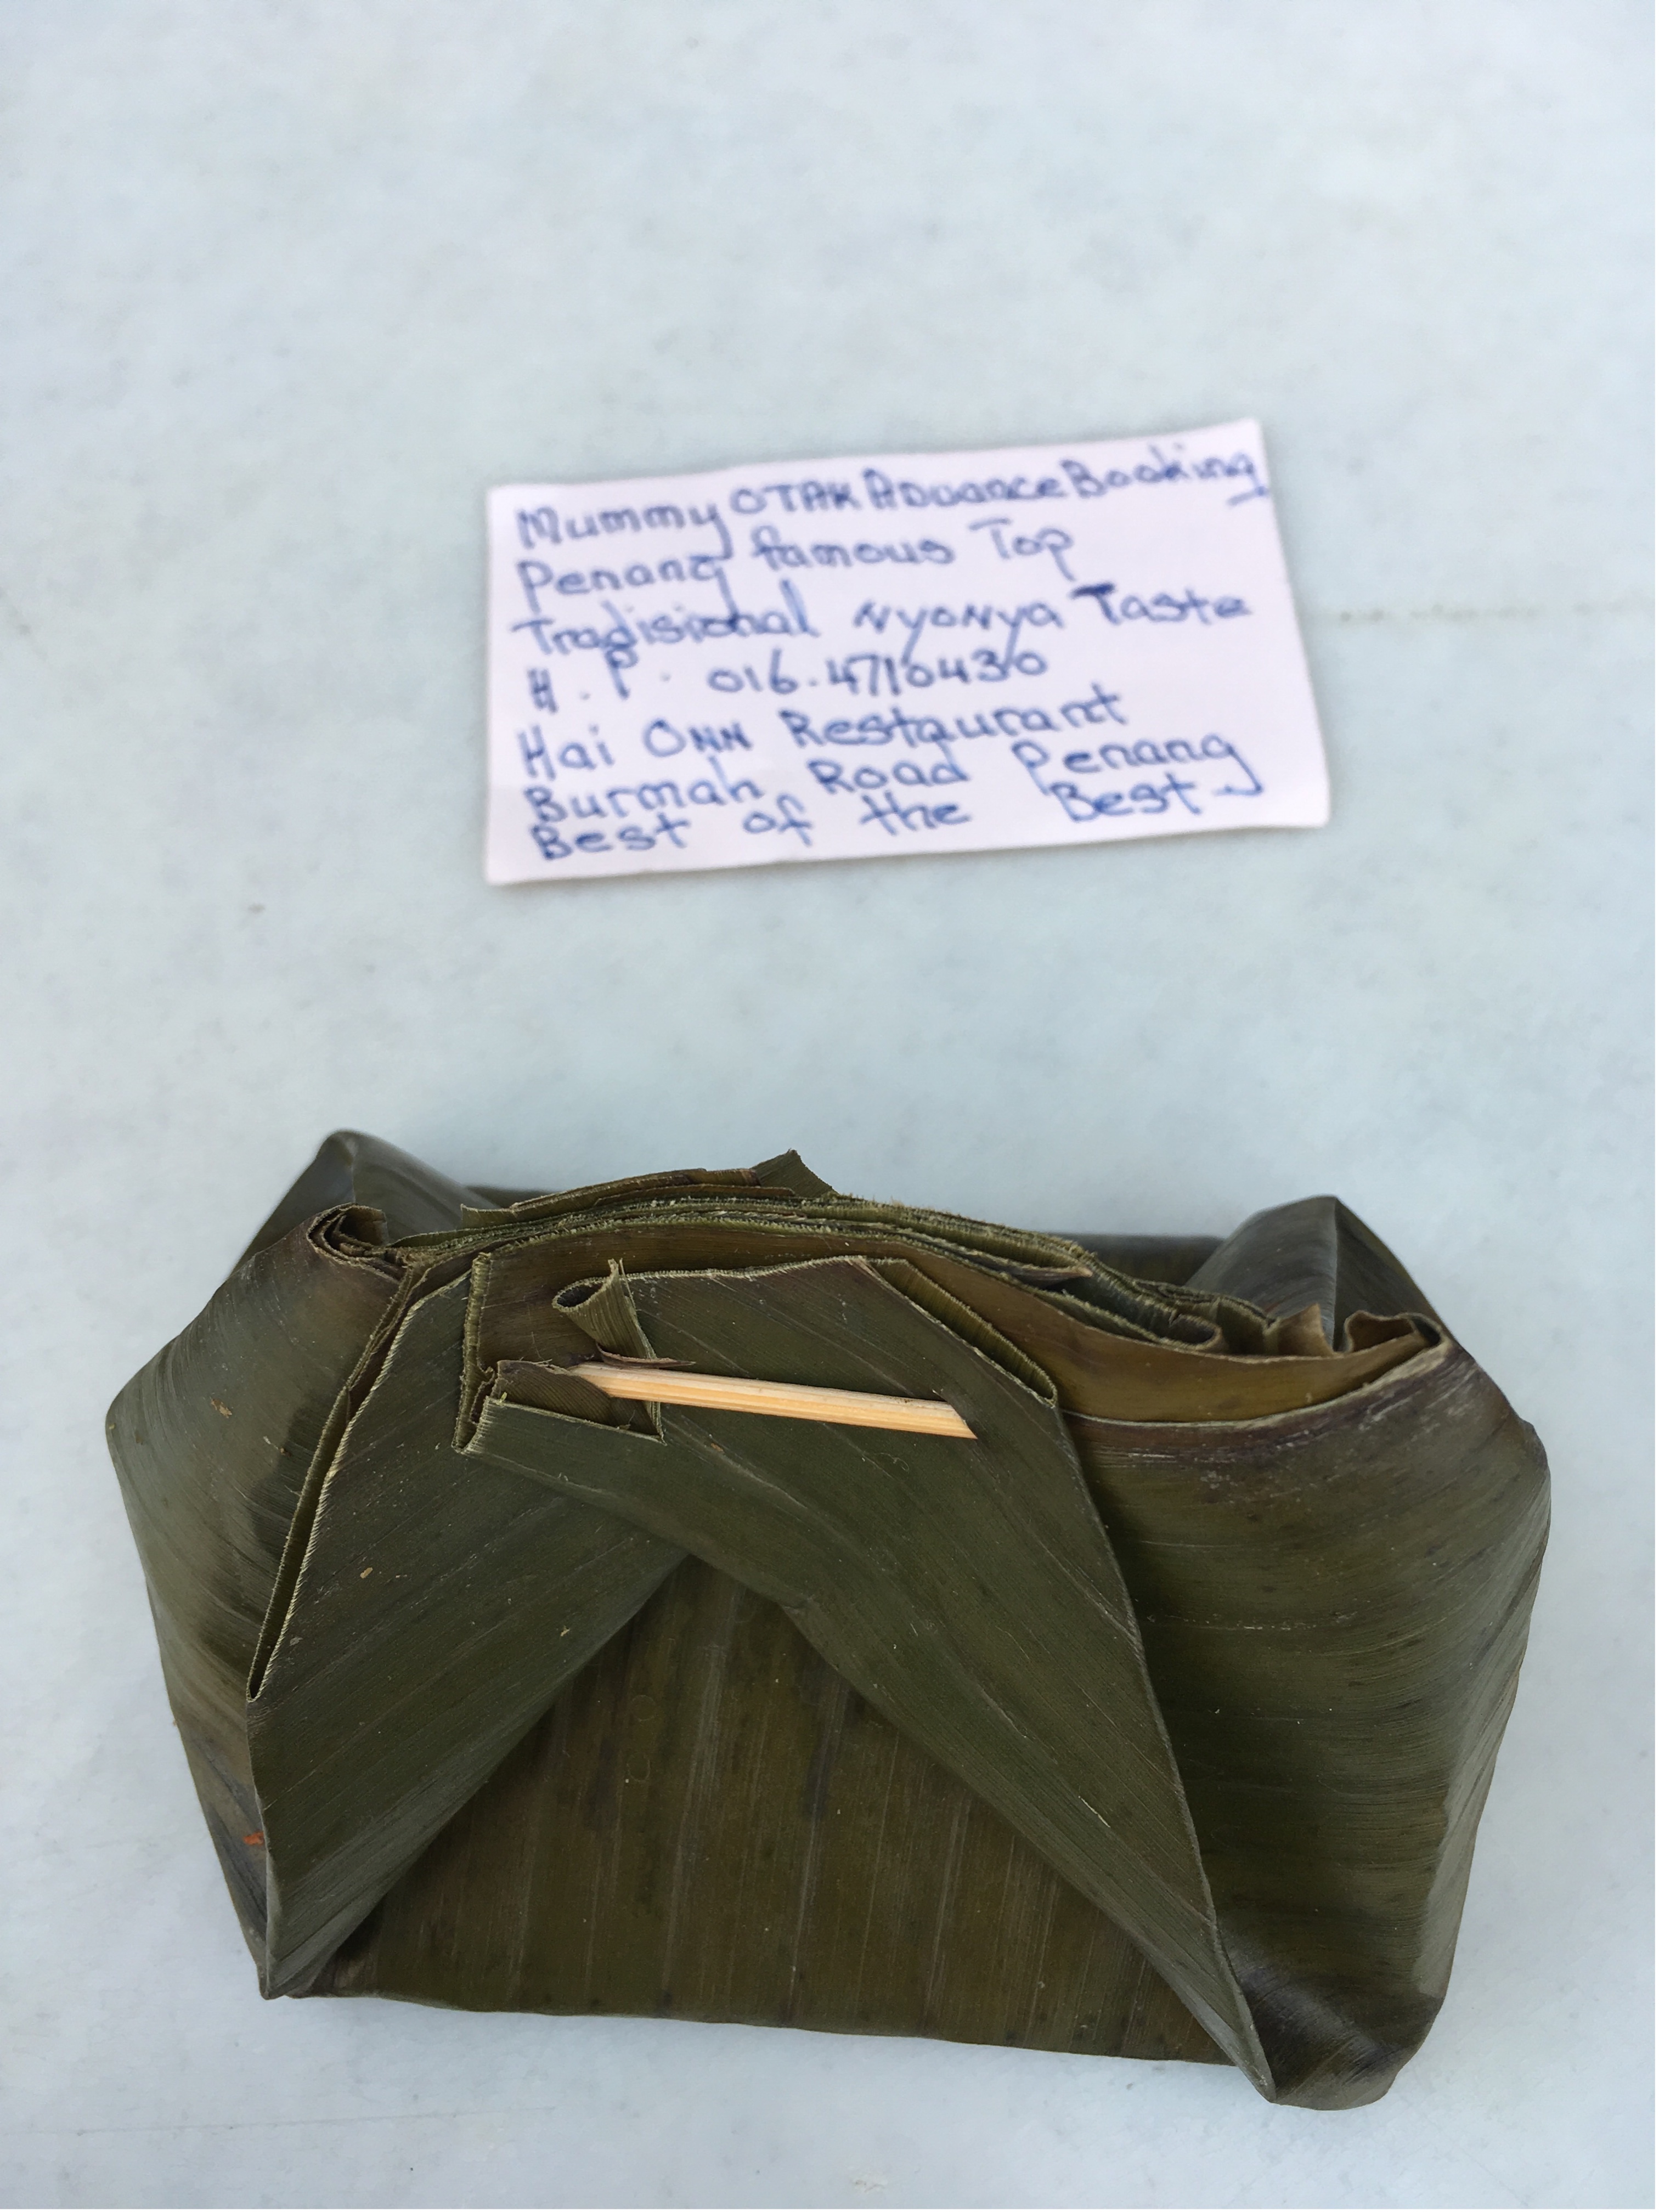 Mummy OTAK Advance Booking
Penang famous Top
Tradisional NYONYA Taste
H.P. 016.4710430
Hai ONN Restaurant
Burmah Road Penang
Best of the Best